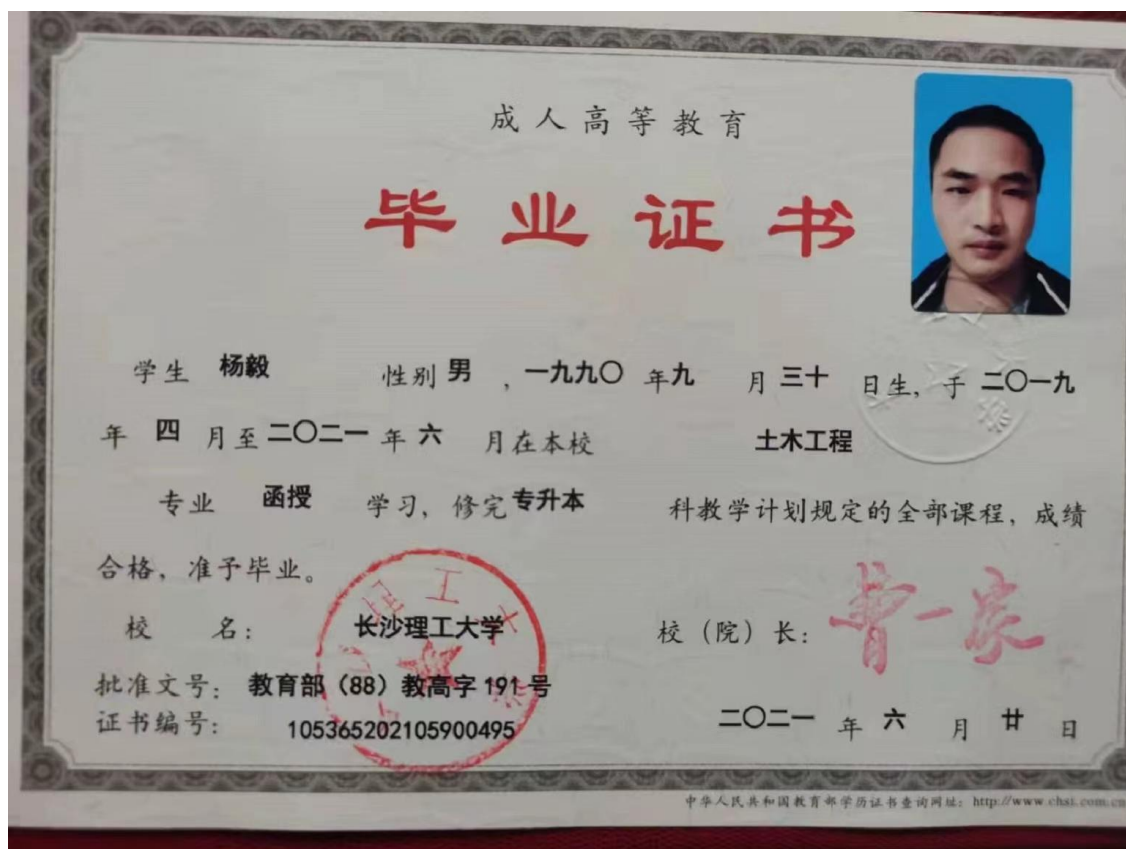 成人高等教育
毕业证书
学生 杨毅 性别 男 ，一九九〇 年 九 月 三十 日生，于 二〇一九
年 四 月至 二〇二一 年 六 月在本校 土木工程
专业 函授 学习，修完 专升本 科教学计划规定的全部课程，成绩
合格，准予毕业。
校 名： 长沙理工大学 校（院）长： 曹一家
批准文号： 教育部（88）教高字 191 号
证书编号： 105365202105900495 二〇二一 年 六 月 廿 日
中华人民共和国教育部学历证书查询网址：http://www.chsi.com.cn